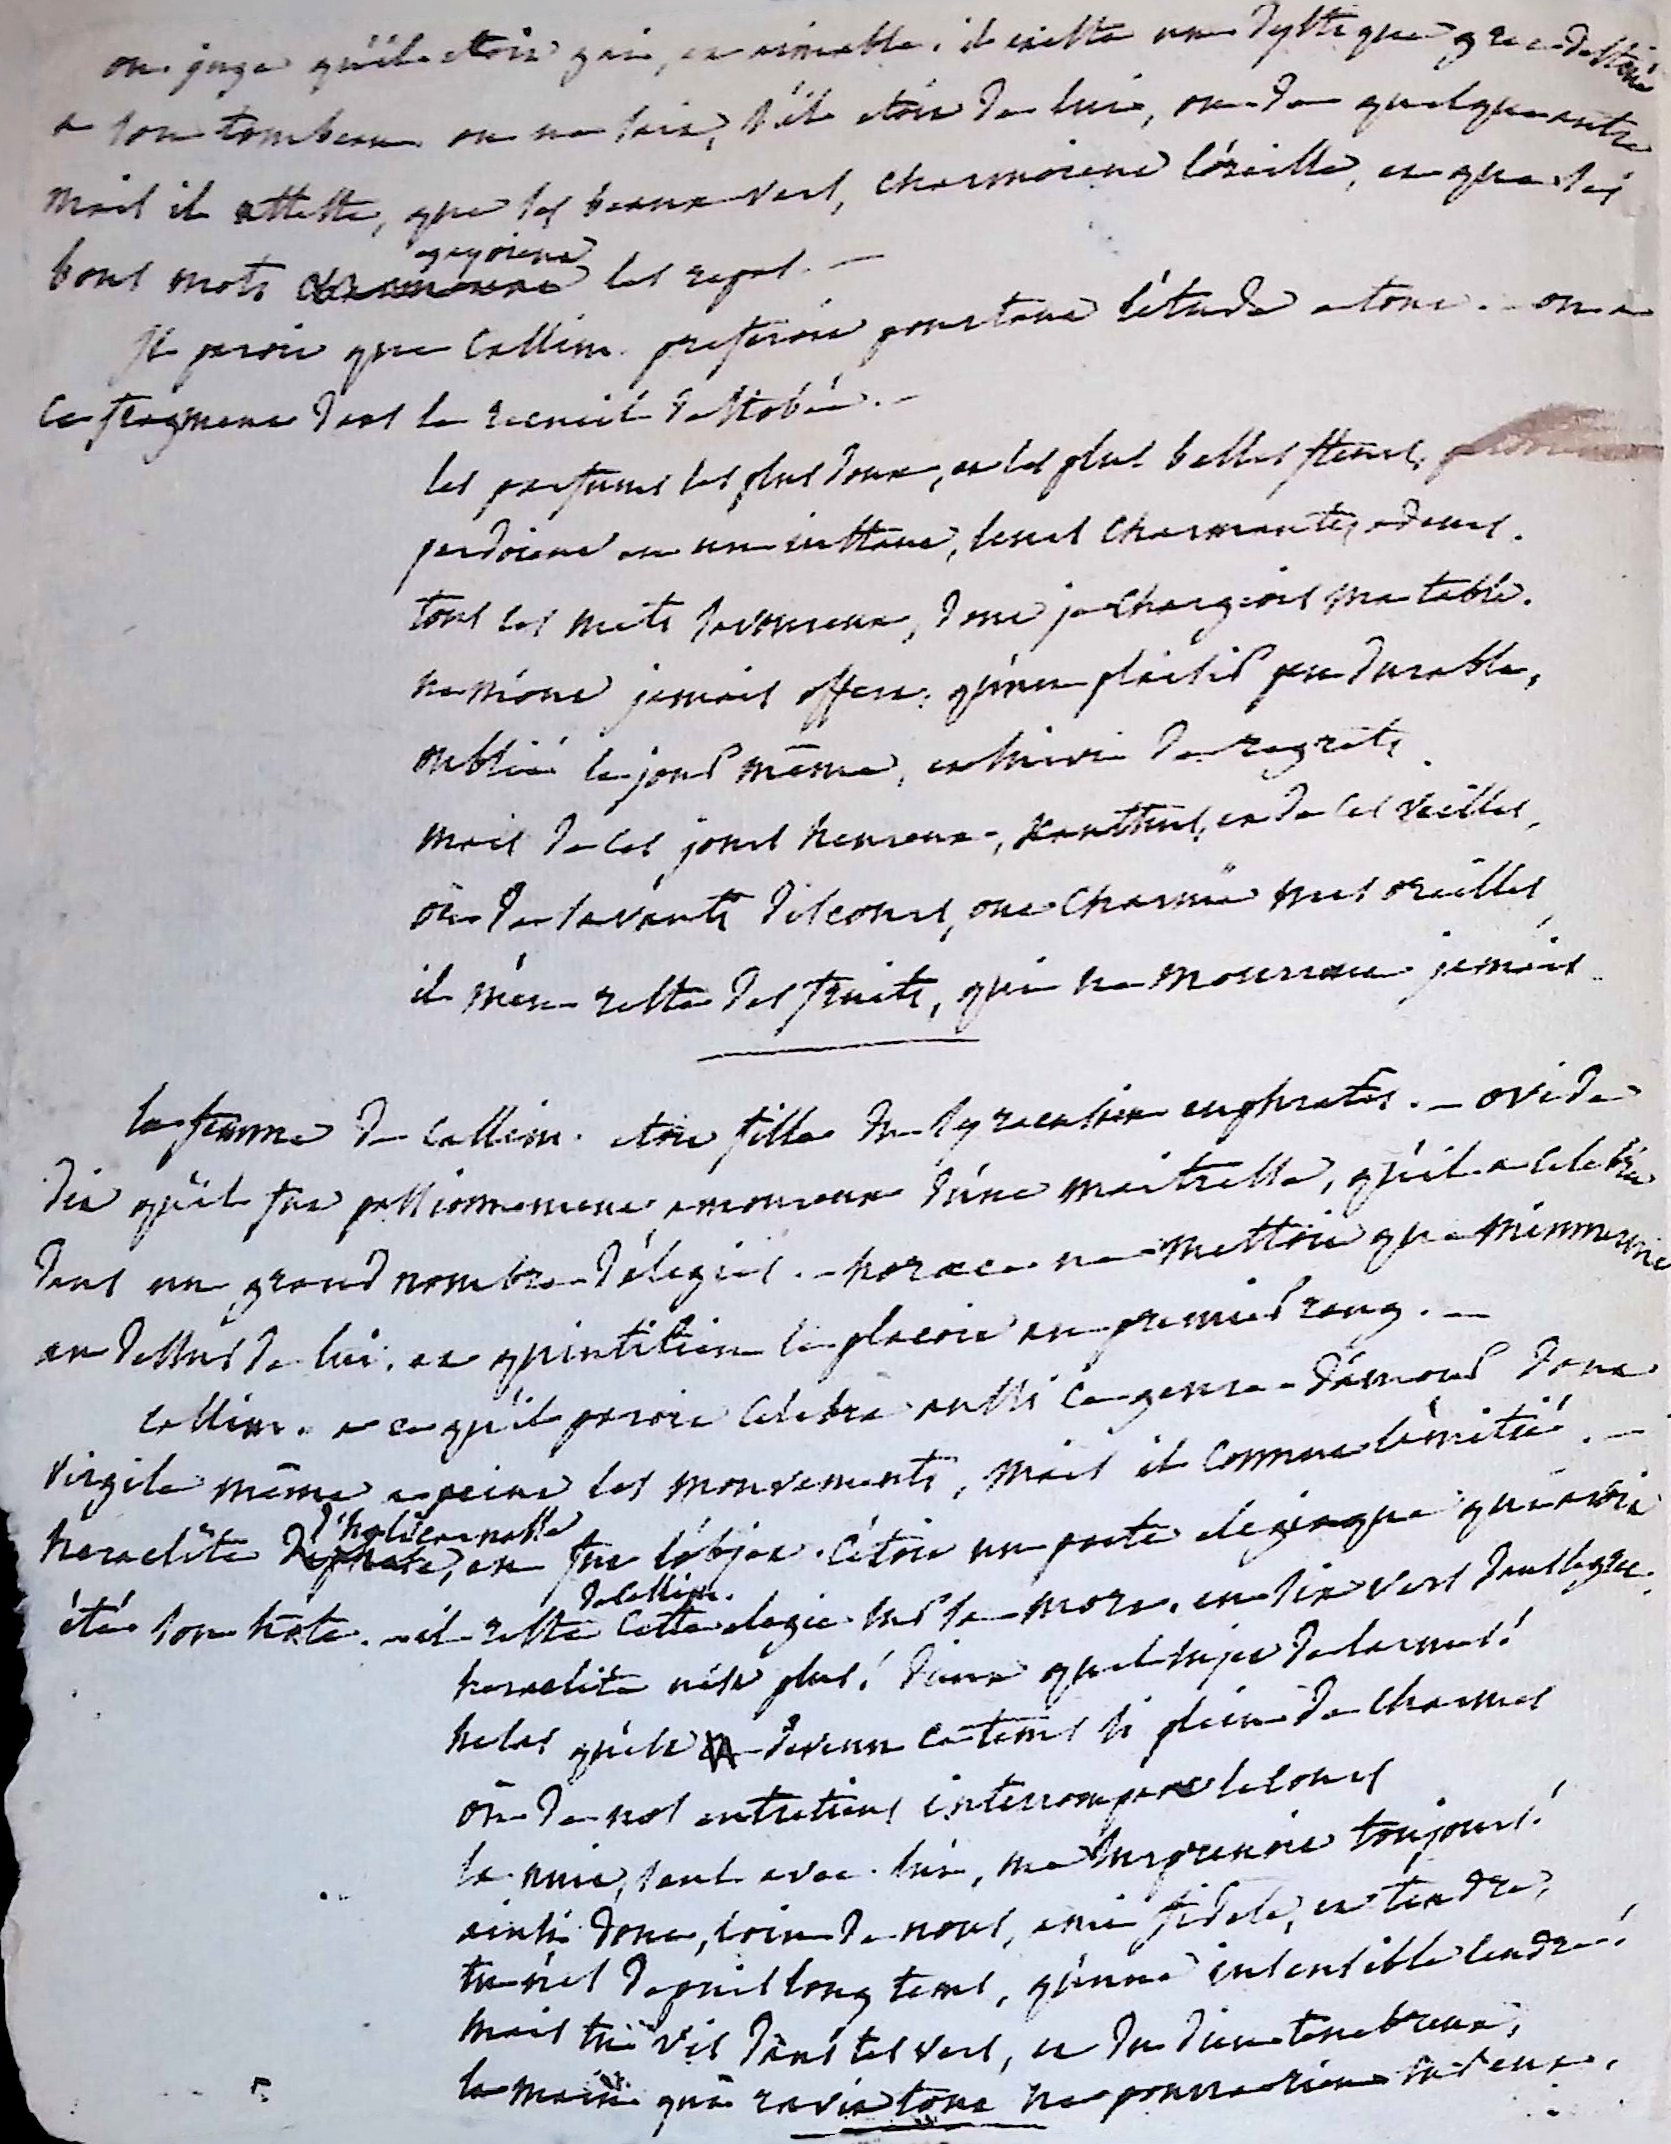 on juge qu'il étoit gai, et aimable. il existe un dystique grec destiné
a son tombeau on ne sait, s'il étoit de lui, ou de quelque autre
mais il atteste, que ses beaux vers, charmoient l'oreille, et que ses
bons mots egayoient les repas. —
Il paroit que Callim. preferoit pourtant l'étude a tout. - on a
ce fragment dans le recueil de Stobée. -
les parfums les plus doux, et les plus belles fleurs,
perdoient en un instant, leurs charmantes odeurs.
tous les mets savoureux, dont je chargeois ma table.
ne m'ont jamais offert, qu'un plaisir peu durable,
oublié le jour même, et suivi de regrets.
mais de ces jours heureux, Xanthus, et de ces veilles,
où de savants discours, ont charmé mes oreilles,
il m'en reste des fruits, qui ne mourront jamais.
la femme de Callim. étoit fille du syracusain euphrates. — ovide
dit qu'il fut passionnement amoureux d'une maitresse, qu'il a celebrée
dans un grand nombre d'élegies. - horace ne mettoit que mimnerme
au dessus de lui. et quintilien le placoit au premier rang. —
Callim. a ce qu'il paroit celebra aussi ce genre d'amour dont
Virgile même a peint les mouvements, mais il connut l'amitié. —
heraclite d'halicarnasse, en fut l'objet. c'étoit un poete elegiaque qui avoit
été son hôte. - il reste cette elegie de Callim. sur sa mort. en six vers dans le grec.
heraclite n'est plus! dieux quel sujet de larmes!
helas qu'est devenu ce tems si plein de charmes
où de nos entretiens interrompant le cours
la nuit, seul avec lui, me surprenoit toujours!
ainsi donc, loin de nous, ami fidele, et tendre,
tu n'es depuis long tems, qu'une insensible cendre!
mais tu vis dans tes vers, et du dieu tenebreux,
la main qui ravit tout ne pourra rien sur eux.